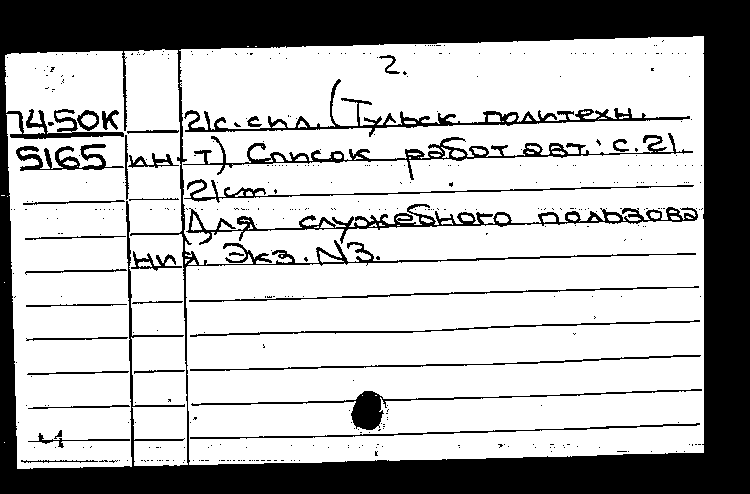 2.
74-50К 21с. сил. (Тульск политехн.
5165 ин-т). Список работ авт.: с. 21.
21см.
Для служебного пользова
ния. Экз. N3.